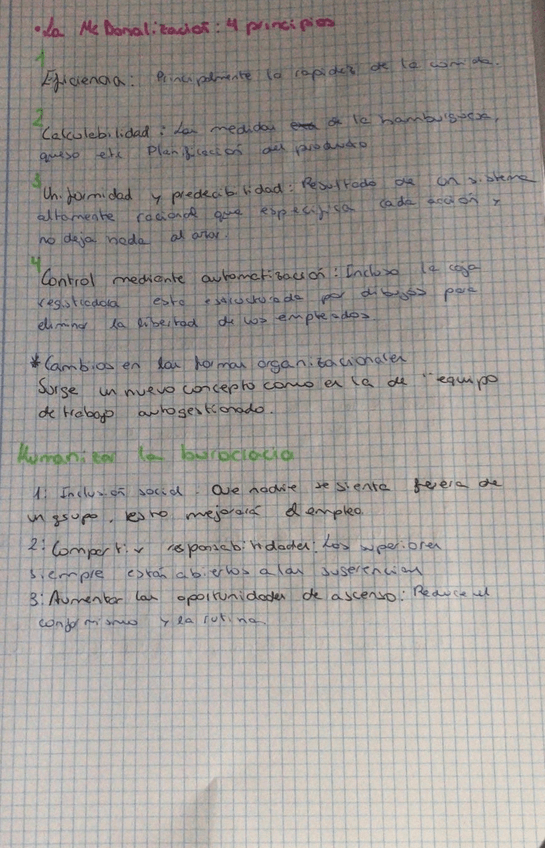 • La McDonalización: 4 principios
1
Eficiencia: Principalmente la rapidez de la comida.
2
Calculabilidad: Las medidas de la hamburguesa,
queso etc Planificación del producto
3
Uniformidad y predecibilidad: Resultado de un sistema
altamente racional que especifica cada acción y
no deja nada al azar.
4
Control mediante automatización: Incluso la caja
registradora esta estructurada por dibujos para
eliminar la libertad de los empleados
* Cambios en las formas organizacionales
Surge un nuevo concepto como es la de "equipo
de trabajo autogestionado.
Humanizar la burocracia
1: Inclusión social. Que nadie se sienta fuera de
un grupo, esto mejorará el empleo.
2: Compartir responsabilidades: Los superiores
siempre están abiertos a las sugerencias
3: Aumentar las oportunidades de ascenso: Reduce el
conformismo y la rutina.